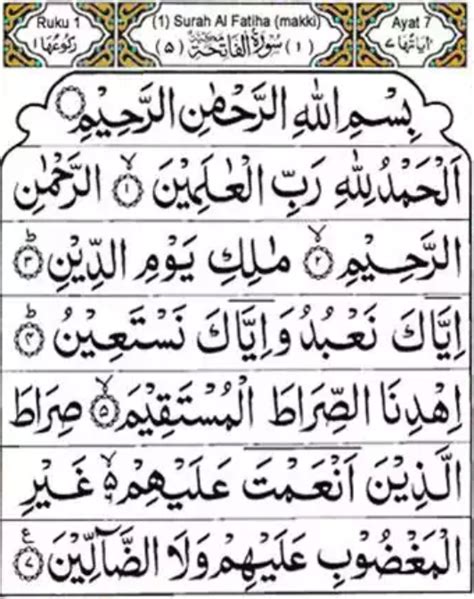 Ruku 1 (1) Surah Al Fatiha (makki) Ayat 7
رکوعها ١ (١) سُوْرَةُ الْفَاتِحَةِ مَكِّيَّةٌ (٥) اٰیاتها ٧
بِسْمِ اللهِ الرَّحْمٰنِ الرَّحِيْمِ
اَلْحَمْدُ لِلّٰهِ رَبِّ الْعٰلَمِيْنَ ۙ﴿١﴾ الرَّحْمٰنِ
الرَّحِيْمِ ۙ﴿٢﴾ مٰلِكِ يَوْمِ الدِّيْنِ ؕ﴿٣﴾
اِيَّاكَ نَعْبُدُ وَاِيَّاكَ نَسْتَعِيْنُ ؕ﴿۴﴾
اِهْدِنَا الصِّرَاطَ الْمُسْتَقِيْمَ ۙ﴿۵﴾ صِرَاطَ
الَّذِيْنَ اَنْعَمْتَ عَلَيْهِمْ ۙ۵ غَيْرِ
الْمَغْضُوْبِ عَلَيْهِمْ وَلَا الضَّآلِّيْنَ ع﴿٧﴾